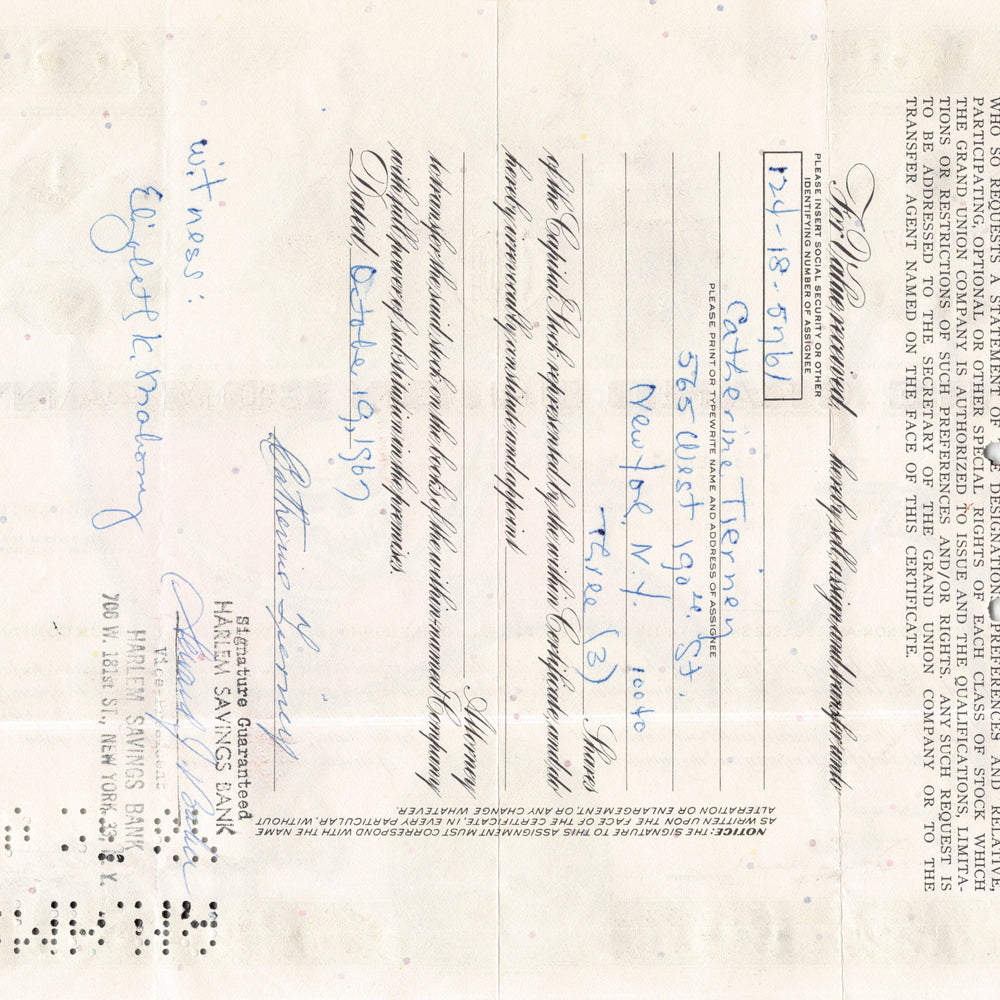 WHO SO REQUESTS A STATEMENT OF DESIGNATION PREFERENCES AND RELATIVE,
PARTICIPATING, OPTIONAL OR OTHER SPECIAL RIGHTS OF EACH CLASS OF STOCK WHICH
THE GRAND UNION COMPANY IS AUTHORIZED TO ISSUE AND THE QUALIFICATIONS, LIMITA-
TIONS OR RESTRICTIONS OF SUCH PREFERENCES AND/OR RIGHTS. ANY SUCH REQUEST IS
TO BE ADDRESSED TO THE SECRETARY OF THE GRAND UNION COMPANY OR TO THE
TRANSFER AGENT NAMED ON THE FACE OF THIS CERTIFICATE.
For Value received, hereby sell, assign and transfer unto
PLEASE INSERT SOCIAL SECURITY OR OTHER
IDENTIFYING NUMBER OF ASSIGNEE
Catherine Tierney
PLEASE PRINT OR TYPEWRITE NAME AND ADDRESS OF ASSIGNEE
565 West 190th St.
New York N.Y. 10040
Three (3) Shares
of the Capital Stock represented by the within Certificate, and do
hereby irrevocably constitute and appoint
Attorney
to transfer the said stock on the books of the within-named Company
with full power of substitution in the premises.
Dated, October 19, 1967
Catherine Tierney
NOTICE: THE SIGNATURE TO THIS ASSIGNMENT MUST CORRESPOND WITH THE NAME
AS WRITTEN UPON THE FACE OF THE CERTIFICATE, IN EVERY PARTICULAR, WITHOUT
ALTERATION OR ENLARGEMENT, OR ANY CHANGE WHATEVER.
Signature Guaranteed
HARLEM SAVINGS BANK
witness:
Vice-President
HARLEM SAVINGS BANK
706 W. 181st ST., NEW YORK 33, N. Y.